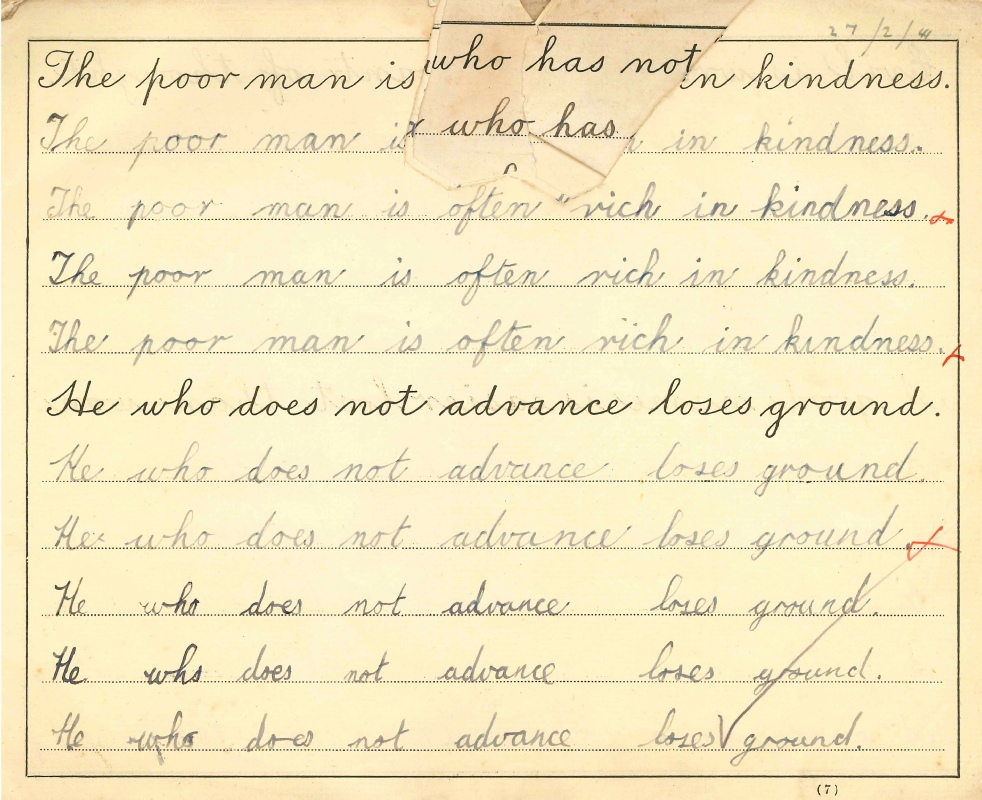 27/2/41
The poor man is who has not in kindness.
The poor man is who has in kindness.
The poor man is often rich in kindness.
The poor man is often rich in kindness.
The poor man is often rich in kindness.
He who does not advance loses ground.
He who does not advance loses ground.
He who does not advance loses ground.
He who does not advance loses ground.
He who does not advance loses ground.
He who does not advance loses ground.
(7)